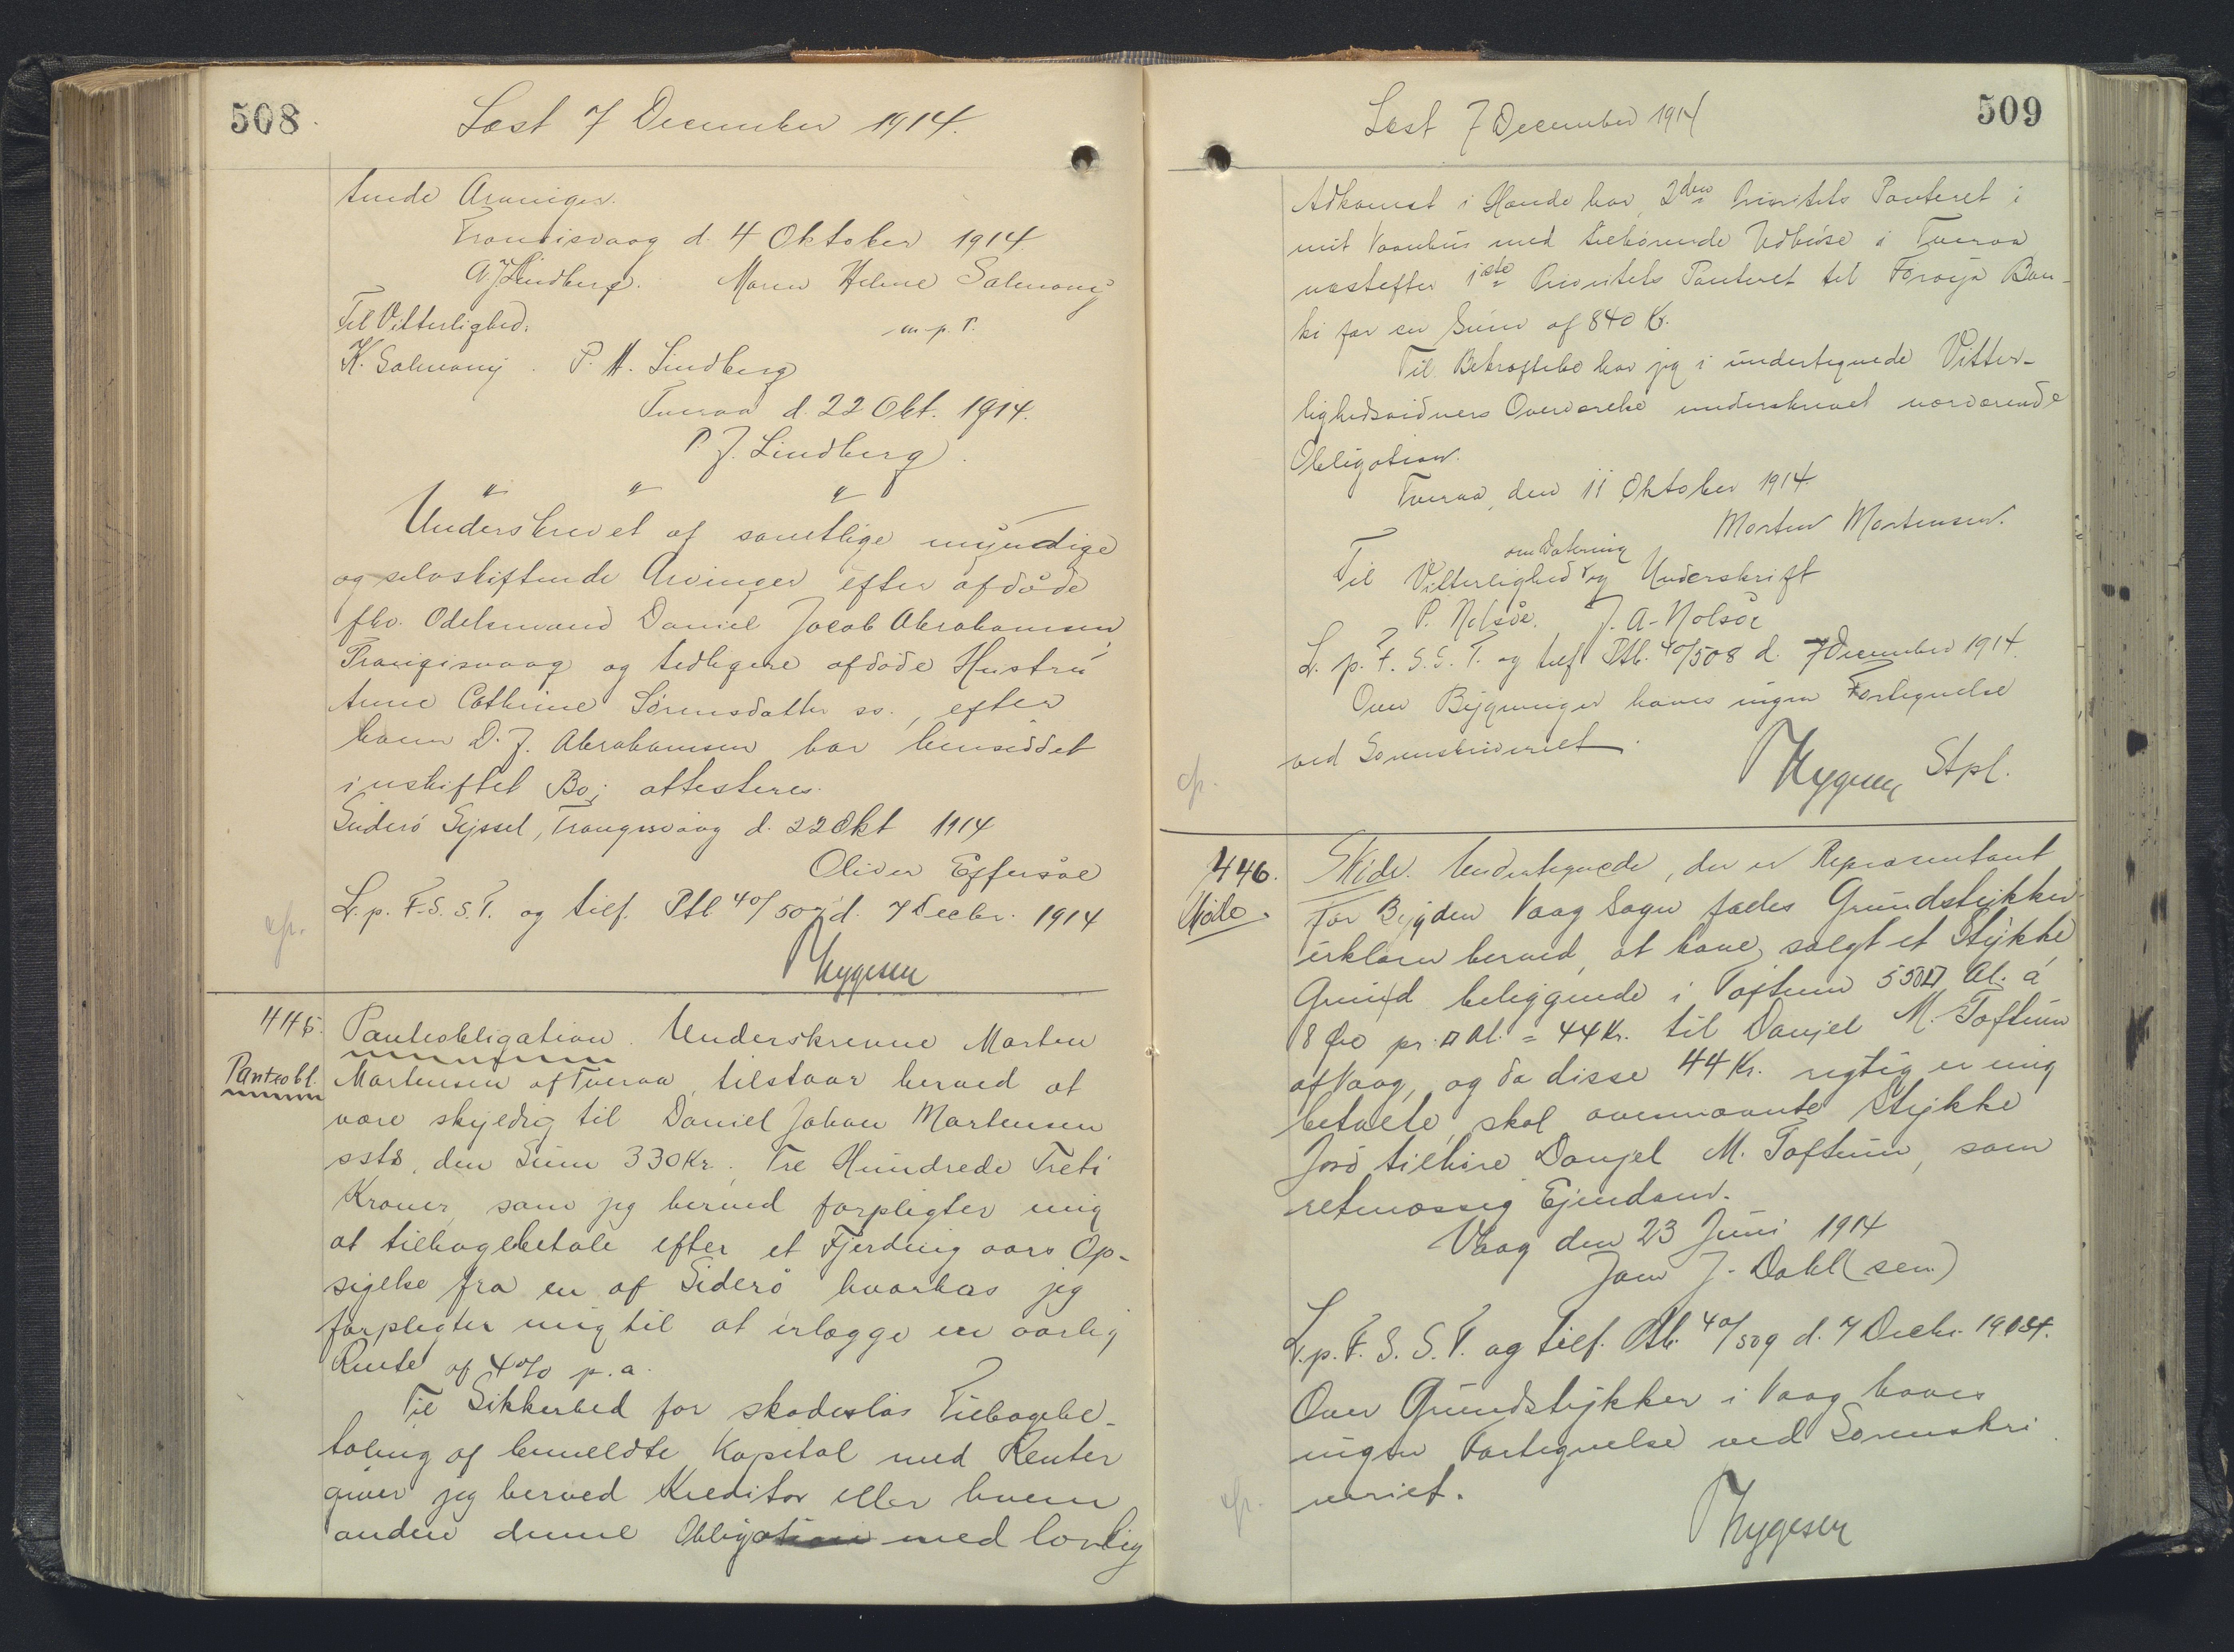 508
Læst 7 December 1914.
tende Arvinger.
Trongisvaag d. 4 Oktober 1914
A J Lindberg. Maren Helene Salmony
m. p. P.
Til Vitterlighed:
K. Salmony. P. M. Lindberg
Tveraa d. 22 Okt. 1914.
P. J. Lindberg.
" " "
Underskrevet af samtlige myndige
og selvskiftende Arvinger efter afdøde
fhv. Odelsmand Daniel Jacob Abrahamsen,
Trangisvaag og tidligere afdøde Hustru
Anne Cathrine Sørensdatter ss., efter
hvem D. J. Abrahamsen har hensiddet
i uskiftet Bo; attesteres.
Suderø Syssel, Trangisvaag d. 22 Okt 1914
Oliver Effersøe
L. p. F. S. S. T. og tilf. Ptb 40/507 d. 7 Decbr. 1914
Thygesen
cfr.
445.
Panteobl.
Panteobligation. Underskrevne Morten
Mortensen af Tveraa tilstaar herved at
være skyldig til Daniel Johan Mortensen
ssts, den Sum 330 Kr., Tre Hundrede Treti
Kroner, som jeg herved forpligter mig
at tilbagebetale efter et Fjerding aars Op-
sigelse fra en af Siderø hvorhos jeg
forpligter mig til at erlægge en aarlig
Rente af 4% p. a.
Til Sikkerhed for skadesløs Tilbagebe-
taling af bemeldte Kapital med Renter
giver jeg herved Kreditor eller hvem
anden denne Obligation med lovlig
509
Læst 7 December 1914
Adkomst i Hænde har, 2den Prioritets Panteret i
mit Vaanhus med tilhørende Udhuse i Tveraa
næstefter 1ste Prioritets Panteret til Føroya Ban-
ki for en Sum af 840 Kr.
Til Bekræftelse har jeg i undertegnede Vitter-
lighedsvidners Overværelse underskrevet nærværende
Obligation.
Tveraa, den 11 Oktober 1914
Morten Mortensen.
om Datering
Til Vitterlighed og Underskrift
P. Nolsøe. J. A. Nolsøe
L. p. F. S. S. T. og tilf Ptb. 40/508 d. 7 December 1914.
Over Bygninger haves ingen Fortegnelse
ved Sorenskriveriet.
Thygesen Stpl.
cfr.
446.
Skøde.
Skøde. Undertegnede, der er Repræsentant
for Bygden Vaag Sogn fælles Grundstykker
erklærer herved, at have solgt et Stykke
Grund beliggende i Toftum 550 □ Al. á
8 Øre pr. □ Al. = 44 Kr. til Danjel M. Toftum
af Vaag, og da disse 44 Kr. rigtig er mig
betalte, skal ovennævnte Stykke
Jord tilhøre Danjel M. Toftum, som
retmæssig Ejendom.
Vaag den 23 Juni 1914
Jam J. Dahl (sen.)
L. p. F. S. S. T. og tilf. Ptb. 40/509 d. 7 Decbr. 1914.
Over Grundstykker i Vaag haves
ingen Fortegnelse ved Sorenskri
veriet.
Thygesen
cfr.